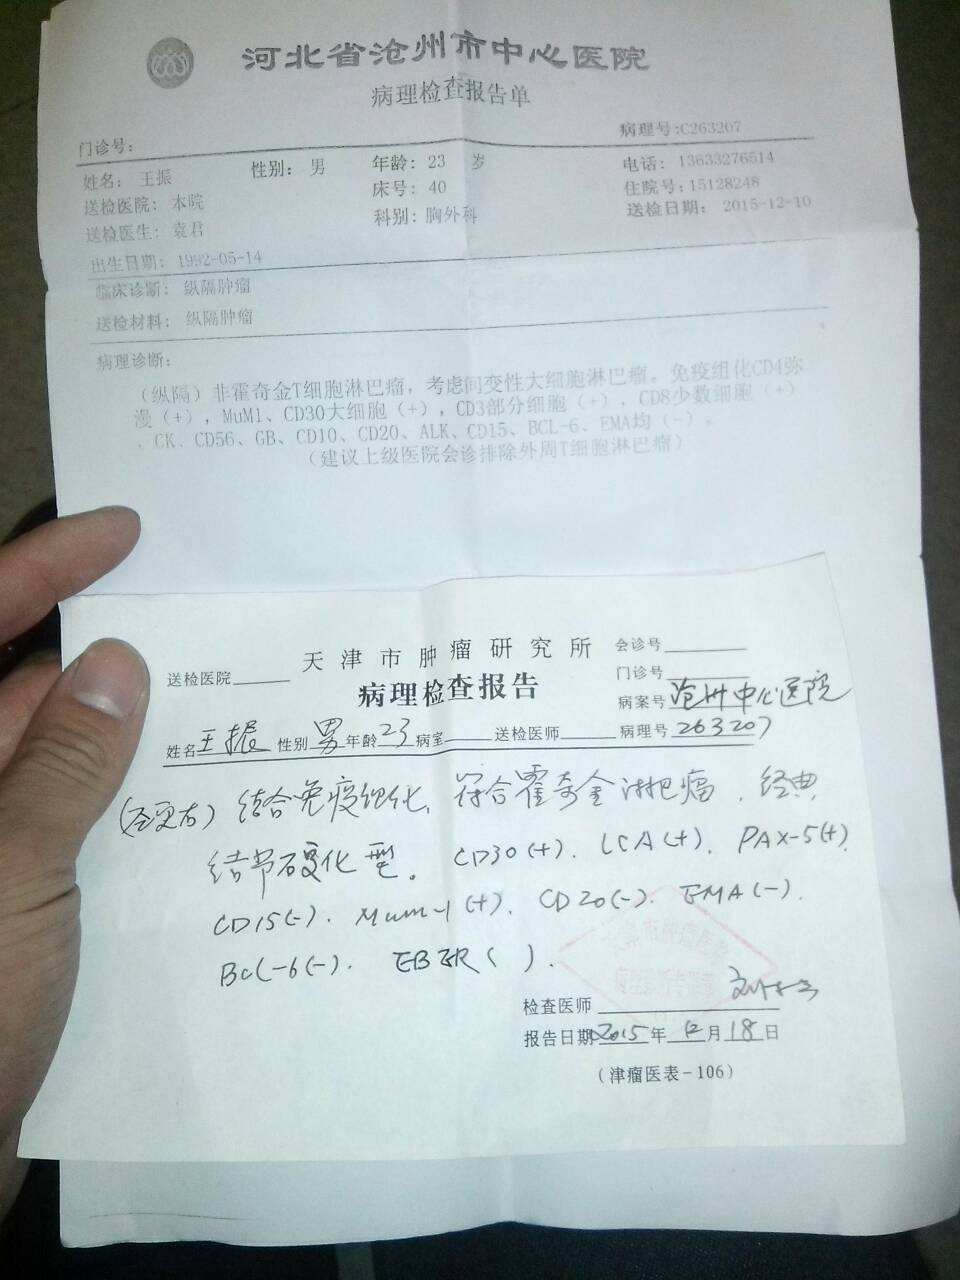 河北省沧州市中心医院
病理检查报告单
门诊号: 病理号:C263207
姓名: 王振 性别: 男 年龄: 23 岁 电话: 13633276514
送检医院: 本院 床号: 40 住院号:15128248
送检医生: 袁君 科别: 胸外科 送检日期: 2015-12-10
出生日期: 1992-05-14
临床诊断: 纵隔肿瘤
送检材料: 纵隔肿瘤
病理诊断:
(纵隔)非霍奇金T细胞淋巴瘤,考虑间变性大细胞淋巴瘤。免疫组化CD4弥
漫(+),MuM1、CD30大细胞(+),CD3部分细胞(+),CD8少数细胞(+)
、CK、CD56、GB、CD10、CD20、ALK、CD15、BCL-6、EMA均(-)。
(建议上级医院会诊排除外周T细胞淋巴瘤)
天津市肿瘤研究所 会诊号
送检医院 病理检查报告 门诊号
病案号 沧州中心医院
姓名 王振 性别 男 年龄 23 病室 送检医师 病理号 263207
结合免疫组化、符合霍奇金淋巴瘤、经典
结节硬化型。CD30(+). LCA(+). PAX-5(+).
CD15(-). Mum-1(+). CD20(-). EMA(-).
Bcl-6(-). EBER( ).
检查医师
报告日期 2015年12月18日
(津瘤医表-106)